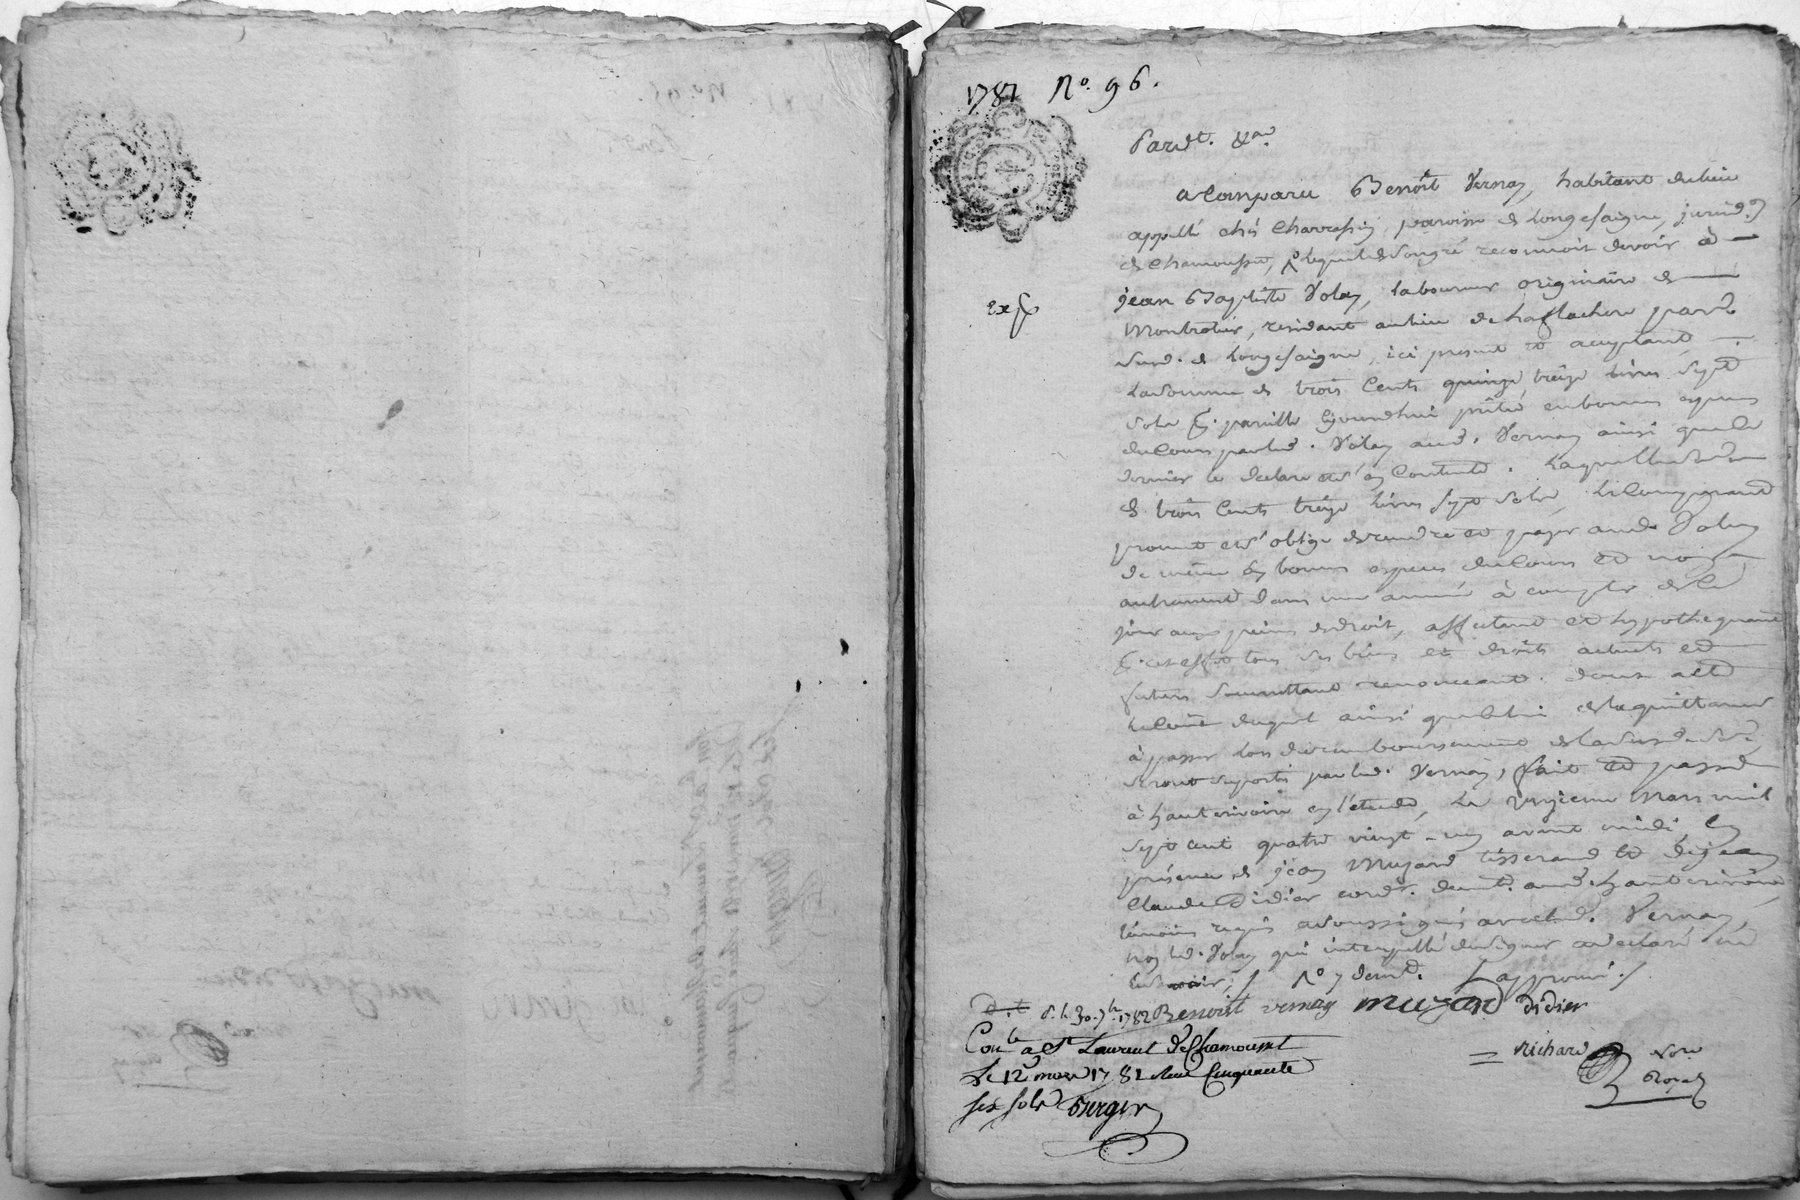 1781 N.° 96.
Pardt. &a.
a Comparu Benoît Vernay, habitant du lieu
appellé chés Charrassin, paroisse de Longesaigne, jurisd.on
de Chamousset, lequel de son gré reconnoit devoir à
jean Baptiste Volay, laboureur originaire de
Montrotier, residant au lieu de la flachere par.sse
dud. de Longesaigne, ici present et acceptant
la somme de trois Cents treize livres Sept
Sols p. pareille aujourd'hui prêtée en bonnes especes
du Cours par led. Volay aud. Vernay ainsi que le
dernier le declare et s'en Contente. Laquelle somme
de trois Cents treize livres Sept Sols, le Comparant
promet et s'oblige de rendre et payer aud. Volay
de même en bonnes especes du Cours et non
autrement dans une année à compter de Ce
jour aux peines de droit, affectant et hypothequant
p. cet effet tous ses biens et droits actuels et
futurs soumettant renonceant. dont acte
le Coût duquel ainsi que Celui de la quittance
à passer lors du remboursement de la susd. somme
seront suportés par led. Vernay, fait et passé
à hauterivoire en l'etude, Le onzieme Mars mil
Sept cent quatre vingt-un avant midi, En
présence de jean Muzard tisserand et de jean
Claude Didier cord.r demt. aud. hauterivoire
témoins requis et soussignés avec led. Vernay,
non led. Volay qui interpellé de signer a declaré ne
le savoir,
exp
Benoist vernay muzard didier
d. l. 30. 7bre. 1782
Con.lé a St Laurent de Chamousset
Le 12 mars 1781 Recu Cinquante
six sols Berger
richard
nore
Royal